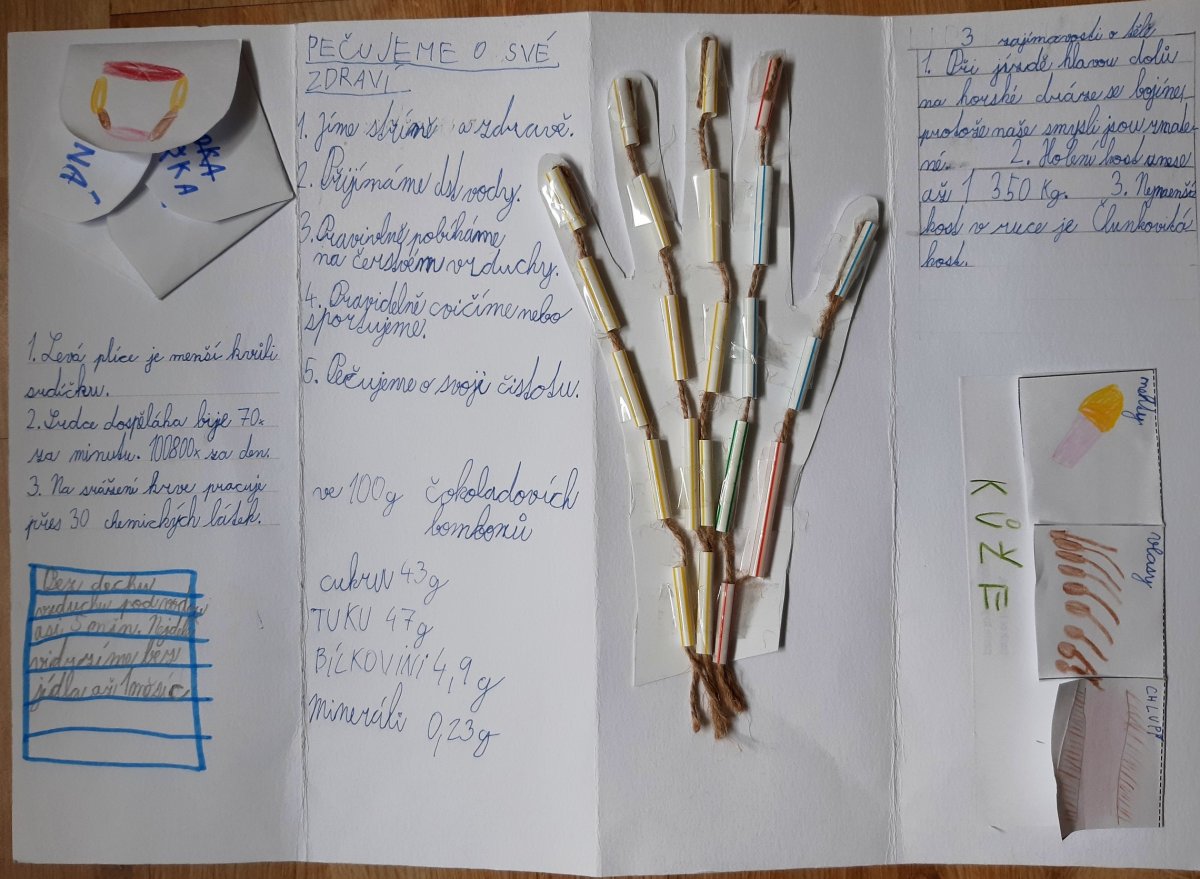 NA
RKA
1. Levá plíce je menší kvůli
srdíčku.
2. Srdce dospěláha bije 70x
za minutu. 100800x za den.
3. Na srážení krve pracuje
přes 30 chemických látek.
Bez dechu
vzduchu pod vodou
asi 3 min. Nejdel
vydržíme bez
jídla asi 1 měsíc
PEČUJEME O SVÉ
ZDRAVÍ
1. Jíme střímě a zdravě.
2. Přijímáme dst vody.
3. Pravivelně pobíháme
na čerstvém vzduchy.
4. Pravidelně cvičíme nebo
sportujeme.
5. Pečujeme o svojí čistotu.
ve 100g čokoladovích
bombonů
cukrů 43g
TUKU 47g
BÍLKOVINI 4,9 g
mineráli 0,23g
3 zajímavosti o těle
1. Při jízdě hlavou dolů
na horské dráze se bojíme,
protože naše smysli jsou zmate-
né. 2. Holení kost unese
aši 1 350 Kg. 3. Nejmenší
kost v ruce je Člunkoviká
kost.
nehty
vlasy
CHLUPY
KŮŽE